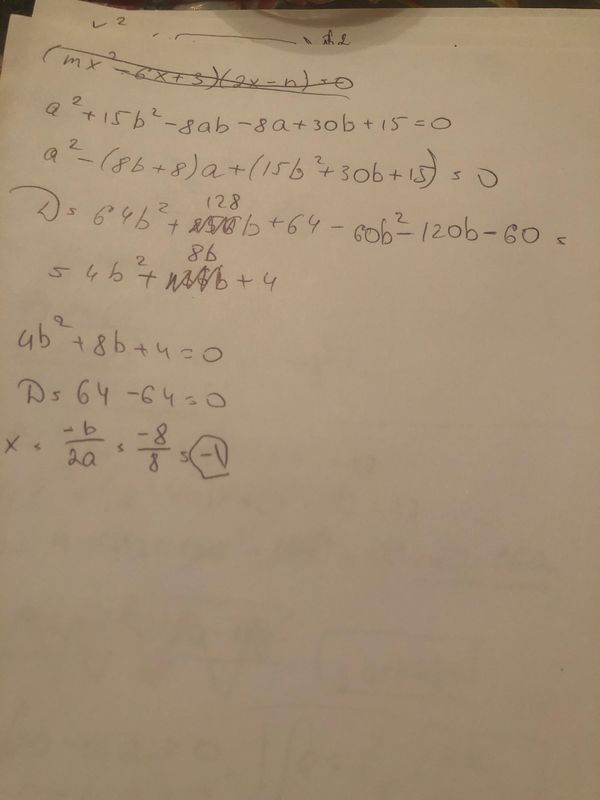 (mx² - 6x + 3)(2x - n) = 0
a² + 15b² - 8ab - 8a + 30b + 15 = 0
a² - (8b + 8)a + (15b² + 30b + 15) = 0
D = 64b² + 128b + 64 - 60b² - 120b - 60 =
= 4b² + 8b + 4
4b² + 8b + 4 = 0
D = 64 - 64 = 0
x = -b/2a = -8/8 = -1